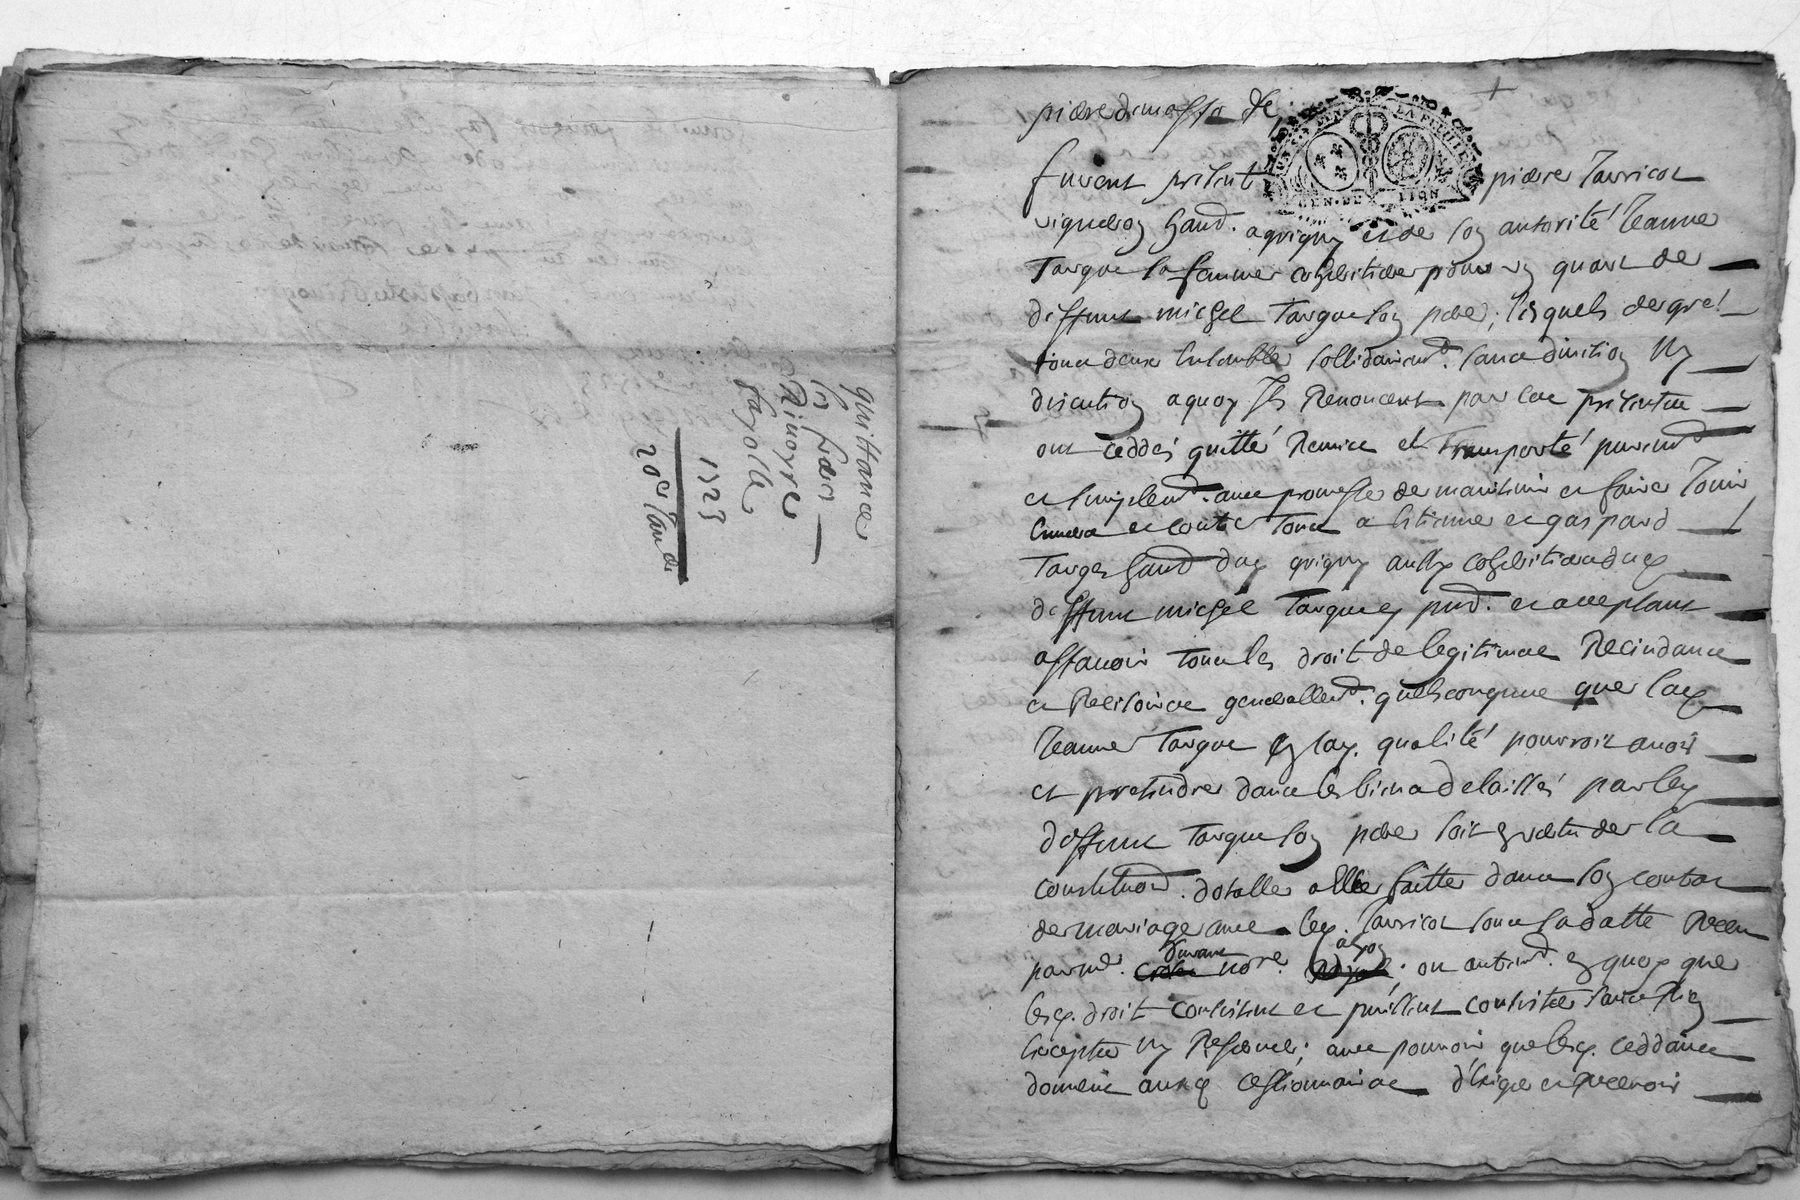 quittance
les freres
Rinoyre
Fayolle
1723
20e Jan er
pierre de masso
GEN. DE LION
furent presents pierre Tarricot
vigneron hand. a grigny et de son autorité Jeanne
Targue sa femme cohéritiere pour un quart de
deffunt michel Targue son pere; lesquels de gré
tous deux ensemble sollidairemt. sans division ny
discution a quoy ils Renoncent par ces presentes
ont ceddés quitté Remis et Transporté puremt
et simplemt. avec promesse de maintenir et faire Jouir
envers et contre tous a etienne et gaspard
Targes hand dud grigny aussy cohéritiers dud
deffunt michel Targue pnt. et acceptant
assavoir tous les droits de legitimes Recindans
et Recisoires generallemt. quelsconques que lad
Jeanne Targue en lad. qualité pourroit avoir
et pretendre dans les biens delaissés par led
deffunt Targue son pere soit en vertu de la
constituon. dotalle a elle faitte dans son contrat
de mariage avec led. Tarricot sous sa datte Receu
par me. devant nore. ou autremt. en quoy que
lesd. droits consistent et puissent consister sans rien
excepter ny Reserver; avec pouvoir que lesd. ceddants
donnent auxd cessionnaires d'exiger et recevoir